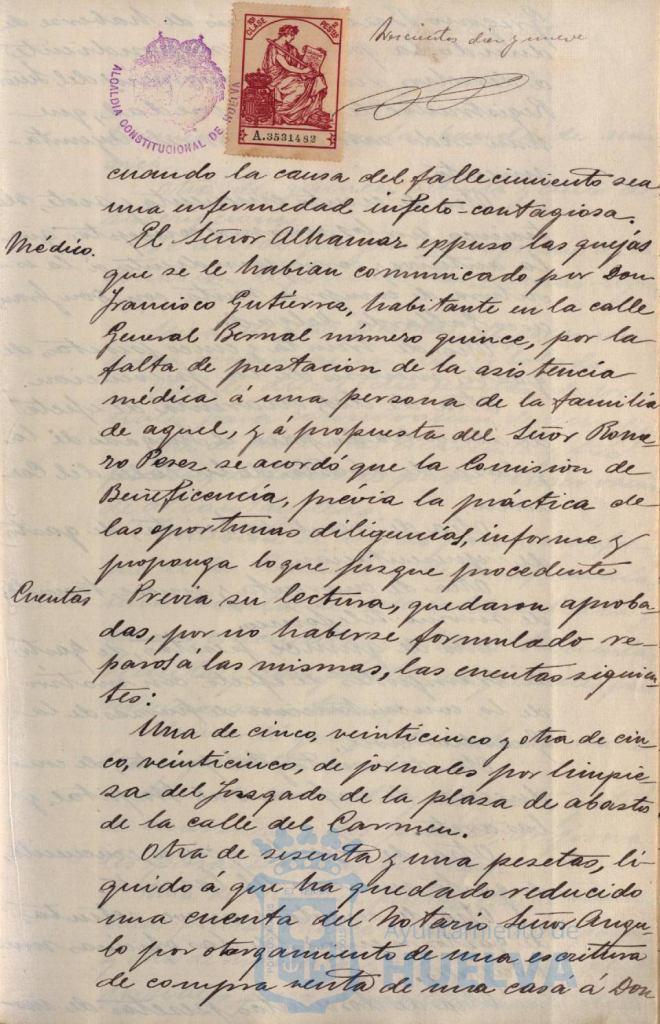 ALCALDIA CONSTITUCIONAL DE HUELVA
10ª CLASE
2 PESETAS
A.3531482
Doscientos diez y nueve
cuando la causa del fallecimiento sea
una enfermedad infecto-contagiosa.
Médico. El Señor Alhamar expuso las quejas
que se le habian comunicado por Don
Francisco Gutiérrez, habitante en la calle
General Bernal número quince, por la
falta de prestacion de la asistencia
médica á una persona de la familia
de aquel, y á propuesta del Señor Rome-
ro Perez se acordó que la Comision de
Beneficencia, prévia la práctica de
las oportunas diligencias, informe y
proponga lo que juzgue procedente
Cuentas Previa su lectura, quedaron aproba-
das, por no haberse formulado re-
paros á las mismas, las cuentas siguien-
tes:
Una de cinco, veinticinco y otra de cin-
co, veinticinco, de jornales por limpie-
za del Juzgado de la plaza de abasto
de la calle del Carmen.
Otra de sesenta y una pesetas, lí-
quido á que ha quedado reducido
una cuenta del Notario Señor Angu-
lo por otorgamiento de una escritura
de compra venta de una casa á Don
Ayuntamiento de
HUELVA